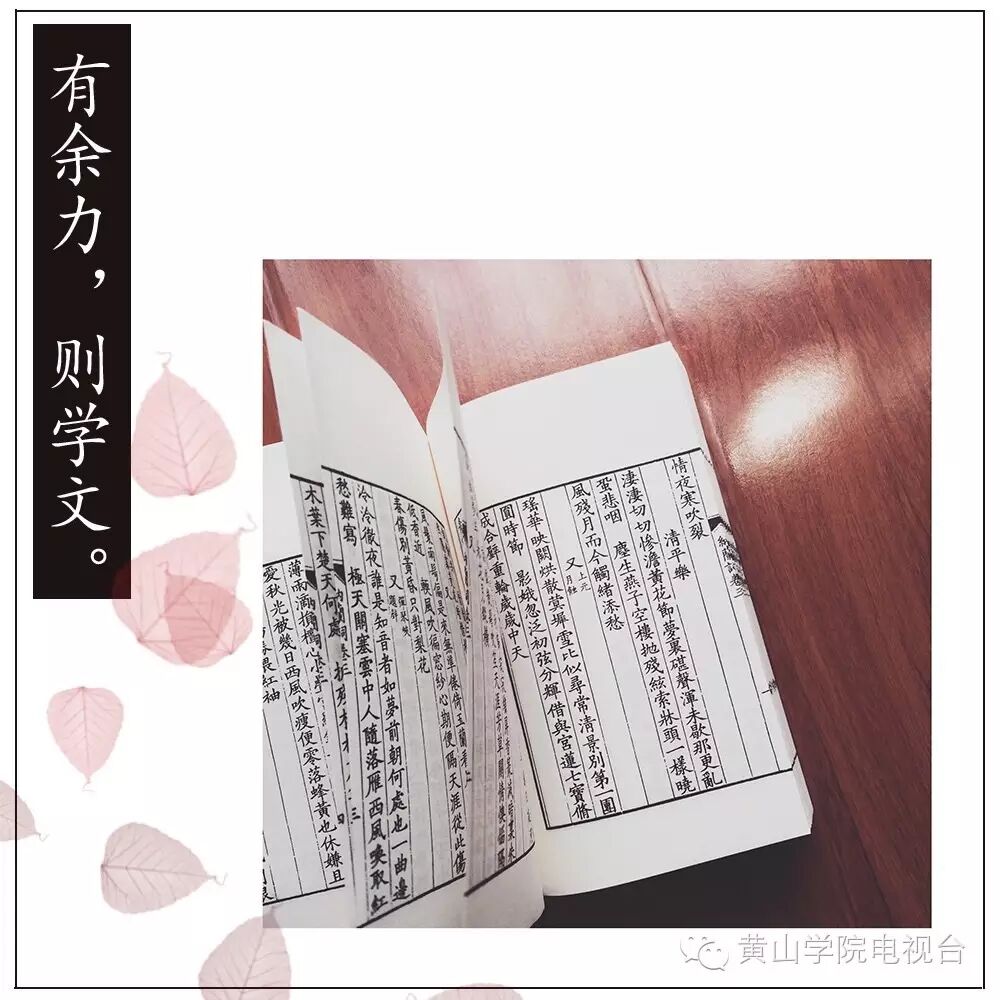 有余力，则学文。
情夜寒吹裂
清平樂
淒淒切切慘澹黃花節夢裏碪聲渾未歇那更亂
蛩悲咽 塵生燕子空樓拋殘絃索牀頭一樣曉
風殘月而今觸緒添愁
又 上元月蝕
瑤華映闕烘散蓂墀雪比似尋常清景別第一團
圓時節 影娥忽泛初弦分輝借與宮蓮七寶脩
成合壁重輪歲歲中天
輕風吹偏窗紗心期便隔天涯從此傷
春傷別黃昏只對梨花
又
泠泠徹夜誰是知音者如夢前朝何處也一曲邊
愁難寫 極天關塞雲中人隨落雁西風喚取紅
木葉下楚天何處
愛秋光被幾日西風吹瘦便零落蜂黃也休嫌且
黄山学院电视台